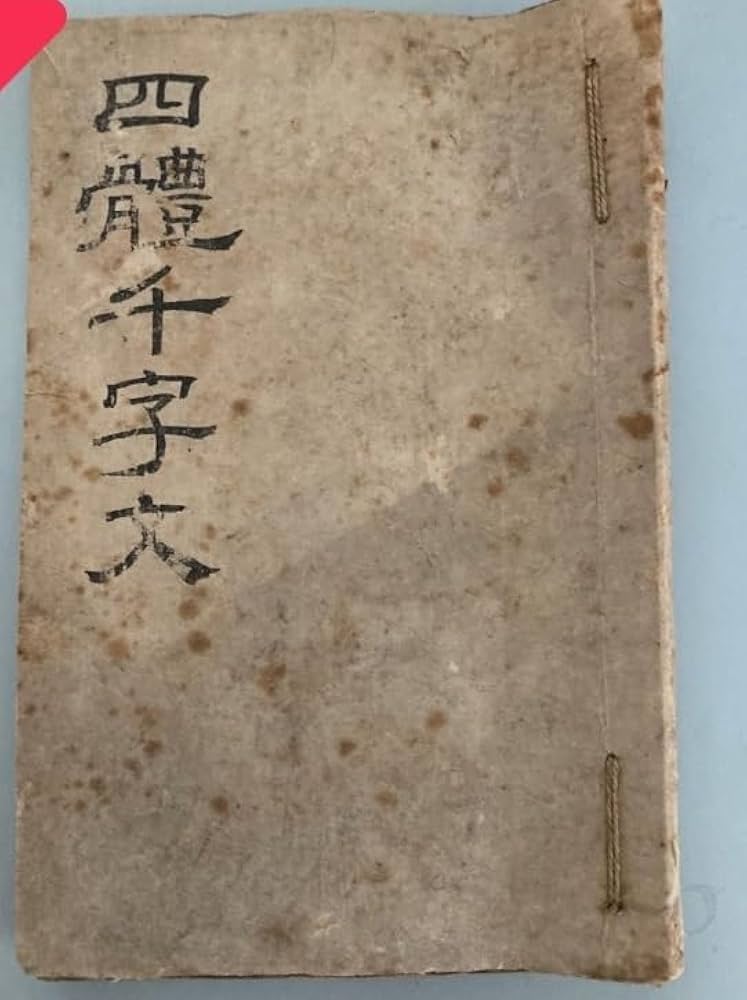 四體千字文